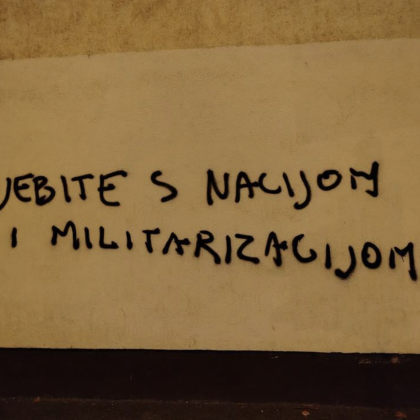 JEBITE S NACIJOM
I MILITARIZACIJOM